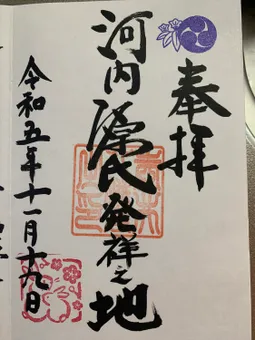 奉拝
河内源氏発祥之地
令和五年十一月十九日